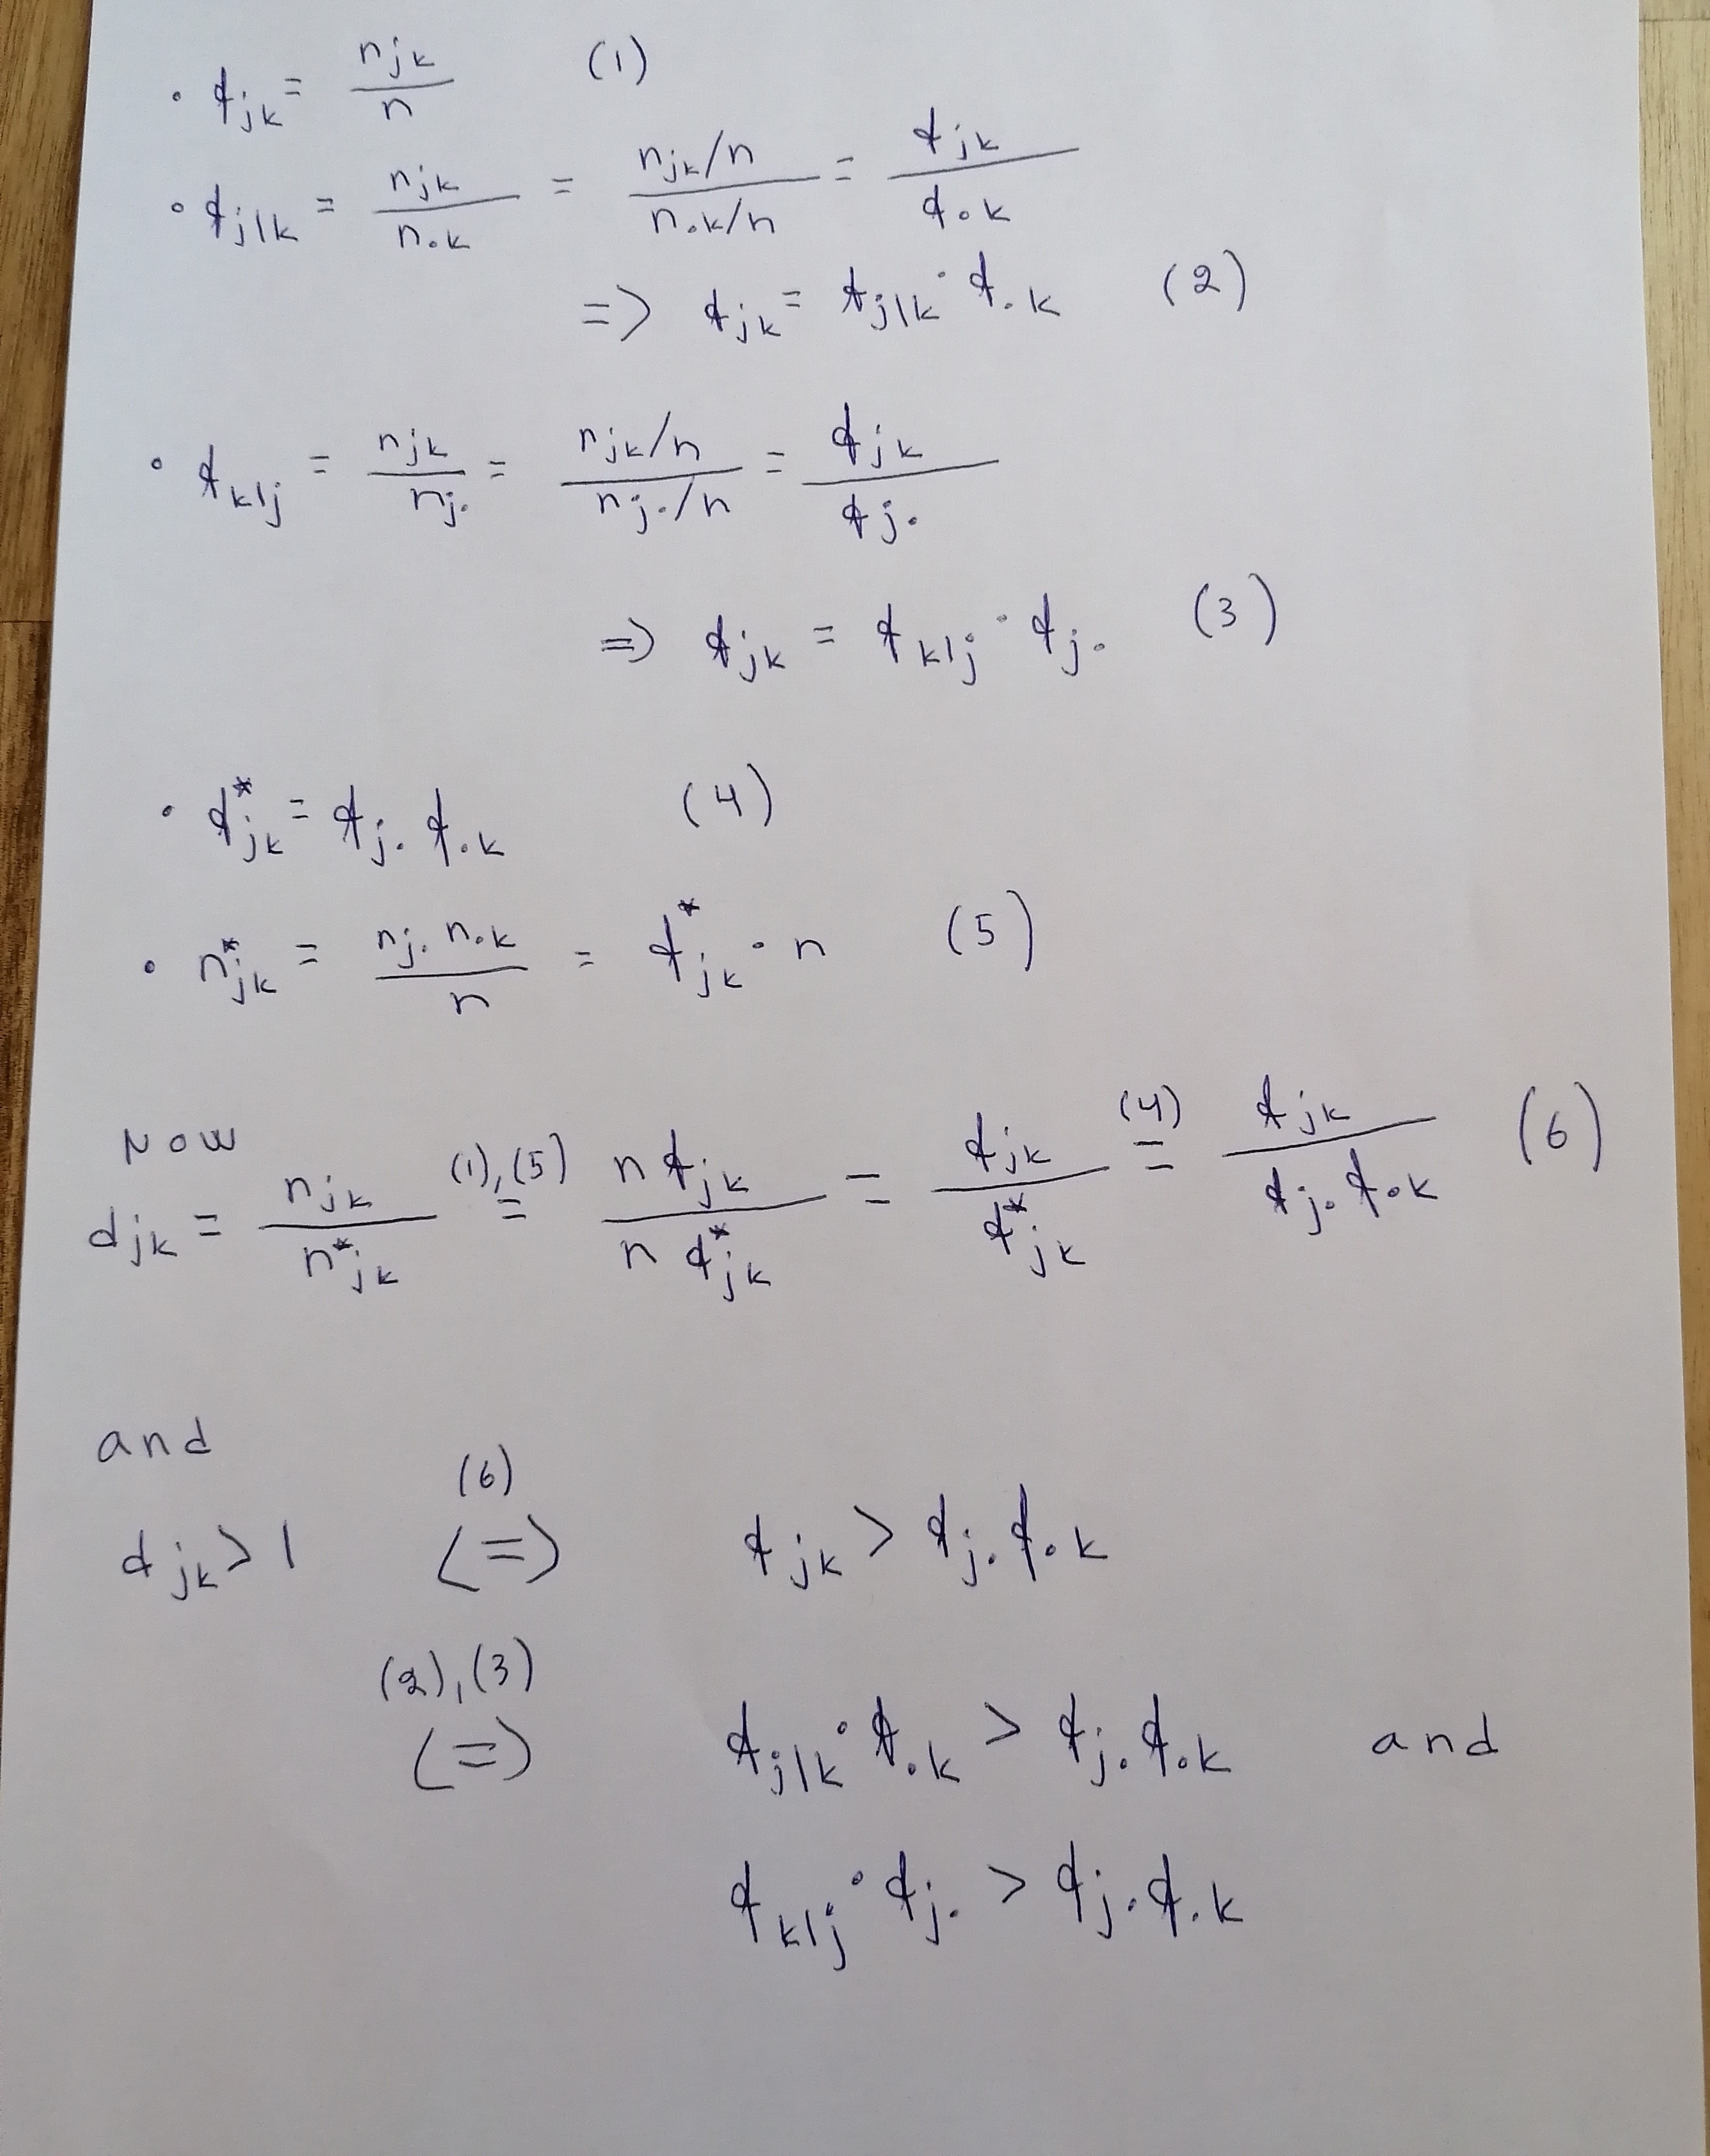 • f_jk = n_jk / n (1)
• f_j|k = n_jk / n.k = (n_jk/n) / (n.k/n) = f_jk / f.k
=> f_jk = f_j|k · f.k (2)
• f_k|j = n_jk / n_j. = (n_jk/n) / (n_j./n) = f_jk / f_j.
=> f_jk = f_k|j · f_j. (3)
• f*_jk = f_j. f.k (4)
• n*_jk = n_j. n.k / n = f*_jk · n (5)
Now
d_jk = n_jk / n*_jk (1),(5) = n f_jk / n f*_jk = f_jk / f*_jk (4) = f_jk / f_j. f.k (6)
and
d_jk > 1 (6) <=> f_jk > f_j. f.k
(2),(3) <=> f_j|k · f.k > f_j. f.k and
f_k|j · f_j. > f_j. f.k